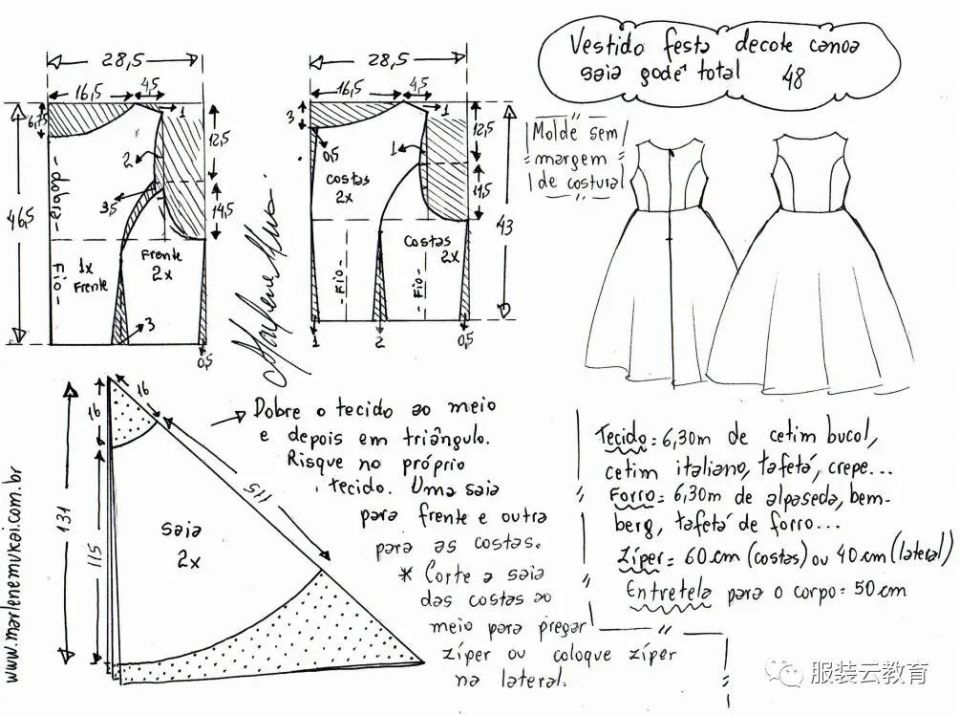 Vestido festa decote canoa
saia godê total 48
28,5
16,5
4,5
1
6,75
12,5
2
3,5
14,5
46,5
dobra
Fio
1x
Frente
Frente
2x
3
0,5
28,5
16,5
4,5
1
3
0,5
12,5
1
costas
2x
11,5
43
Costas
2x
Fio
Fio
1
2
0,5
Molde sem
margem
de costura
Marlene Mukai
16
16
131
115
115
saia
2x
www.marlenemukai.com.br
Dobre o tecido ao meio
e depois em triângulo.
Risque no próprio
tecido. Uma saia
para frente e outra
para as costas.
* Corte a saia
das costas ao
meio para pregar
zíper ou coloque zíper
na lateral.
Tecido = 6,30m de cetim bucol,
cetim italiano, tafetá, crepe...
Forro = 6,30m de alpaseda, bem-
berg, tafetá de forro...
Zíper = 60 cm (costas) ou 40 cm (lateral)
Entretela para o corpo = 50 cm
服装云教育